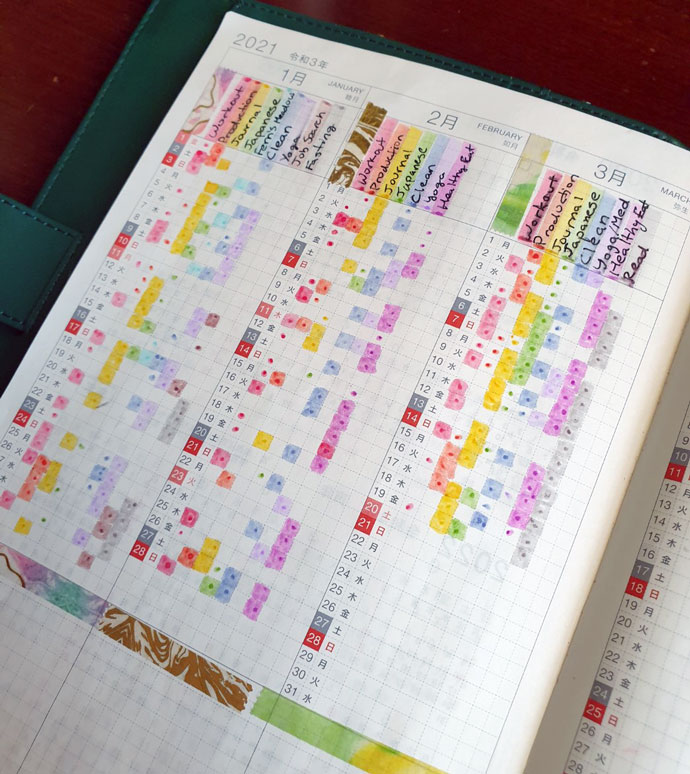 2021 令和3年
1月 JANUARY 睦月
Workout
Production
Journal
Japanese
Fern's Meadow
Clean
Yoga
Job Search
Fasting
2 土
3 日
4 月
5 火
6 水
7 木
8 金
9 土
10 日
11 月
12 火
13 水
14 木
15 金
16 土
17 日
18 月
19 火
20 水
21 木
22 金
23 土
24 日
25 月
26 火
水
木
2月 FEBRUARY 如月
Workout
Production
Journal
Japanese
Clean
yoga
Healthy Eat
1 月
2 火
3 水
4 木
5 金
6 土
7 日
8 月
9 火
10 水
11 木
12 金
13 土
14 日
15 月
16 火
17 水
18 木
19 金
20 土
21 日
22 月
23 火
24 水
25 木
26 金
27 土
28 日
3月 MARCH
Workout
Production
Journal
Japanese
Clean
Yoga/Med
Healthy Eat
Read
1 月
2 火
3 水
4 木
5 金
6 土
7 日
8 月
9 火
10 水
11 木
12 金
13 土
14 日
15 月
16 火
17 水
18 木
19 金
20 土
21 日
22 月
23 火
24 水
25 木
26 金
27 土
28 日
29 月
30 火
31 水
9
10 土
11 日
12 月
13 火
14 水
15 木
16 金
17 土
18 日
19 月
20 火
21 水
22 木
23 金
24 土
25 日
26 月
27 火
28 水